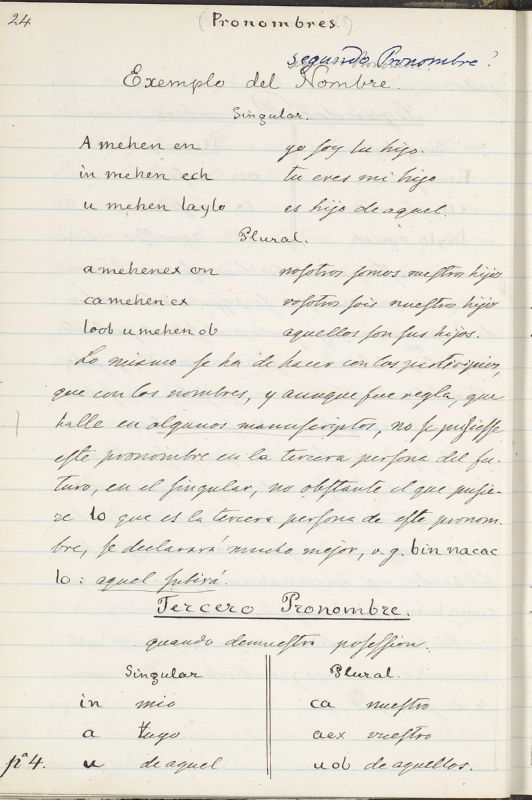 24
(Pronombres.)
segundo Pronombre?
Exemplo del Nombre.
Singular.
A mehen en yo soy tu hijo.
in mehen ech tu eres mi hijo
u mehen laylo es hijo de aquel.
Plural.
amehenex on nosotros somos vuestros hijos
camehen ex vosotros sois nuestros hijos
loob u mehen ob aquellos son sus hijos.
Lo mismo se ha de hacer con los participios,
que con los nombres, y aunque fue regla, que
halle en algunos manuscriptos, no se pusiesse
este pronombre en la tercera persona del fu-
turo, en el singular, no obstante el que pusie-
re lo que es la tercera persona de este pronom-
bre, se declarará mucho mejor, v.g. bin nacac
lo: aquel subirá.
Tercero Pronombre.
quando demuestra possession.
Singular Plural.
in mio ca nuestro
a tuyo aex vuestro
pª 4. u de aquel u ob de aquellos.